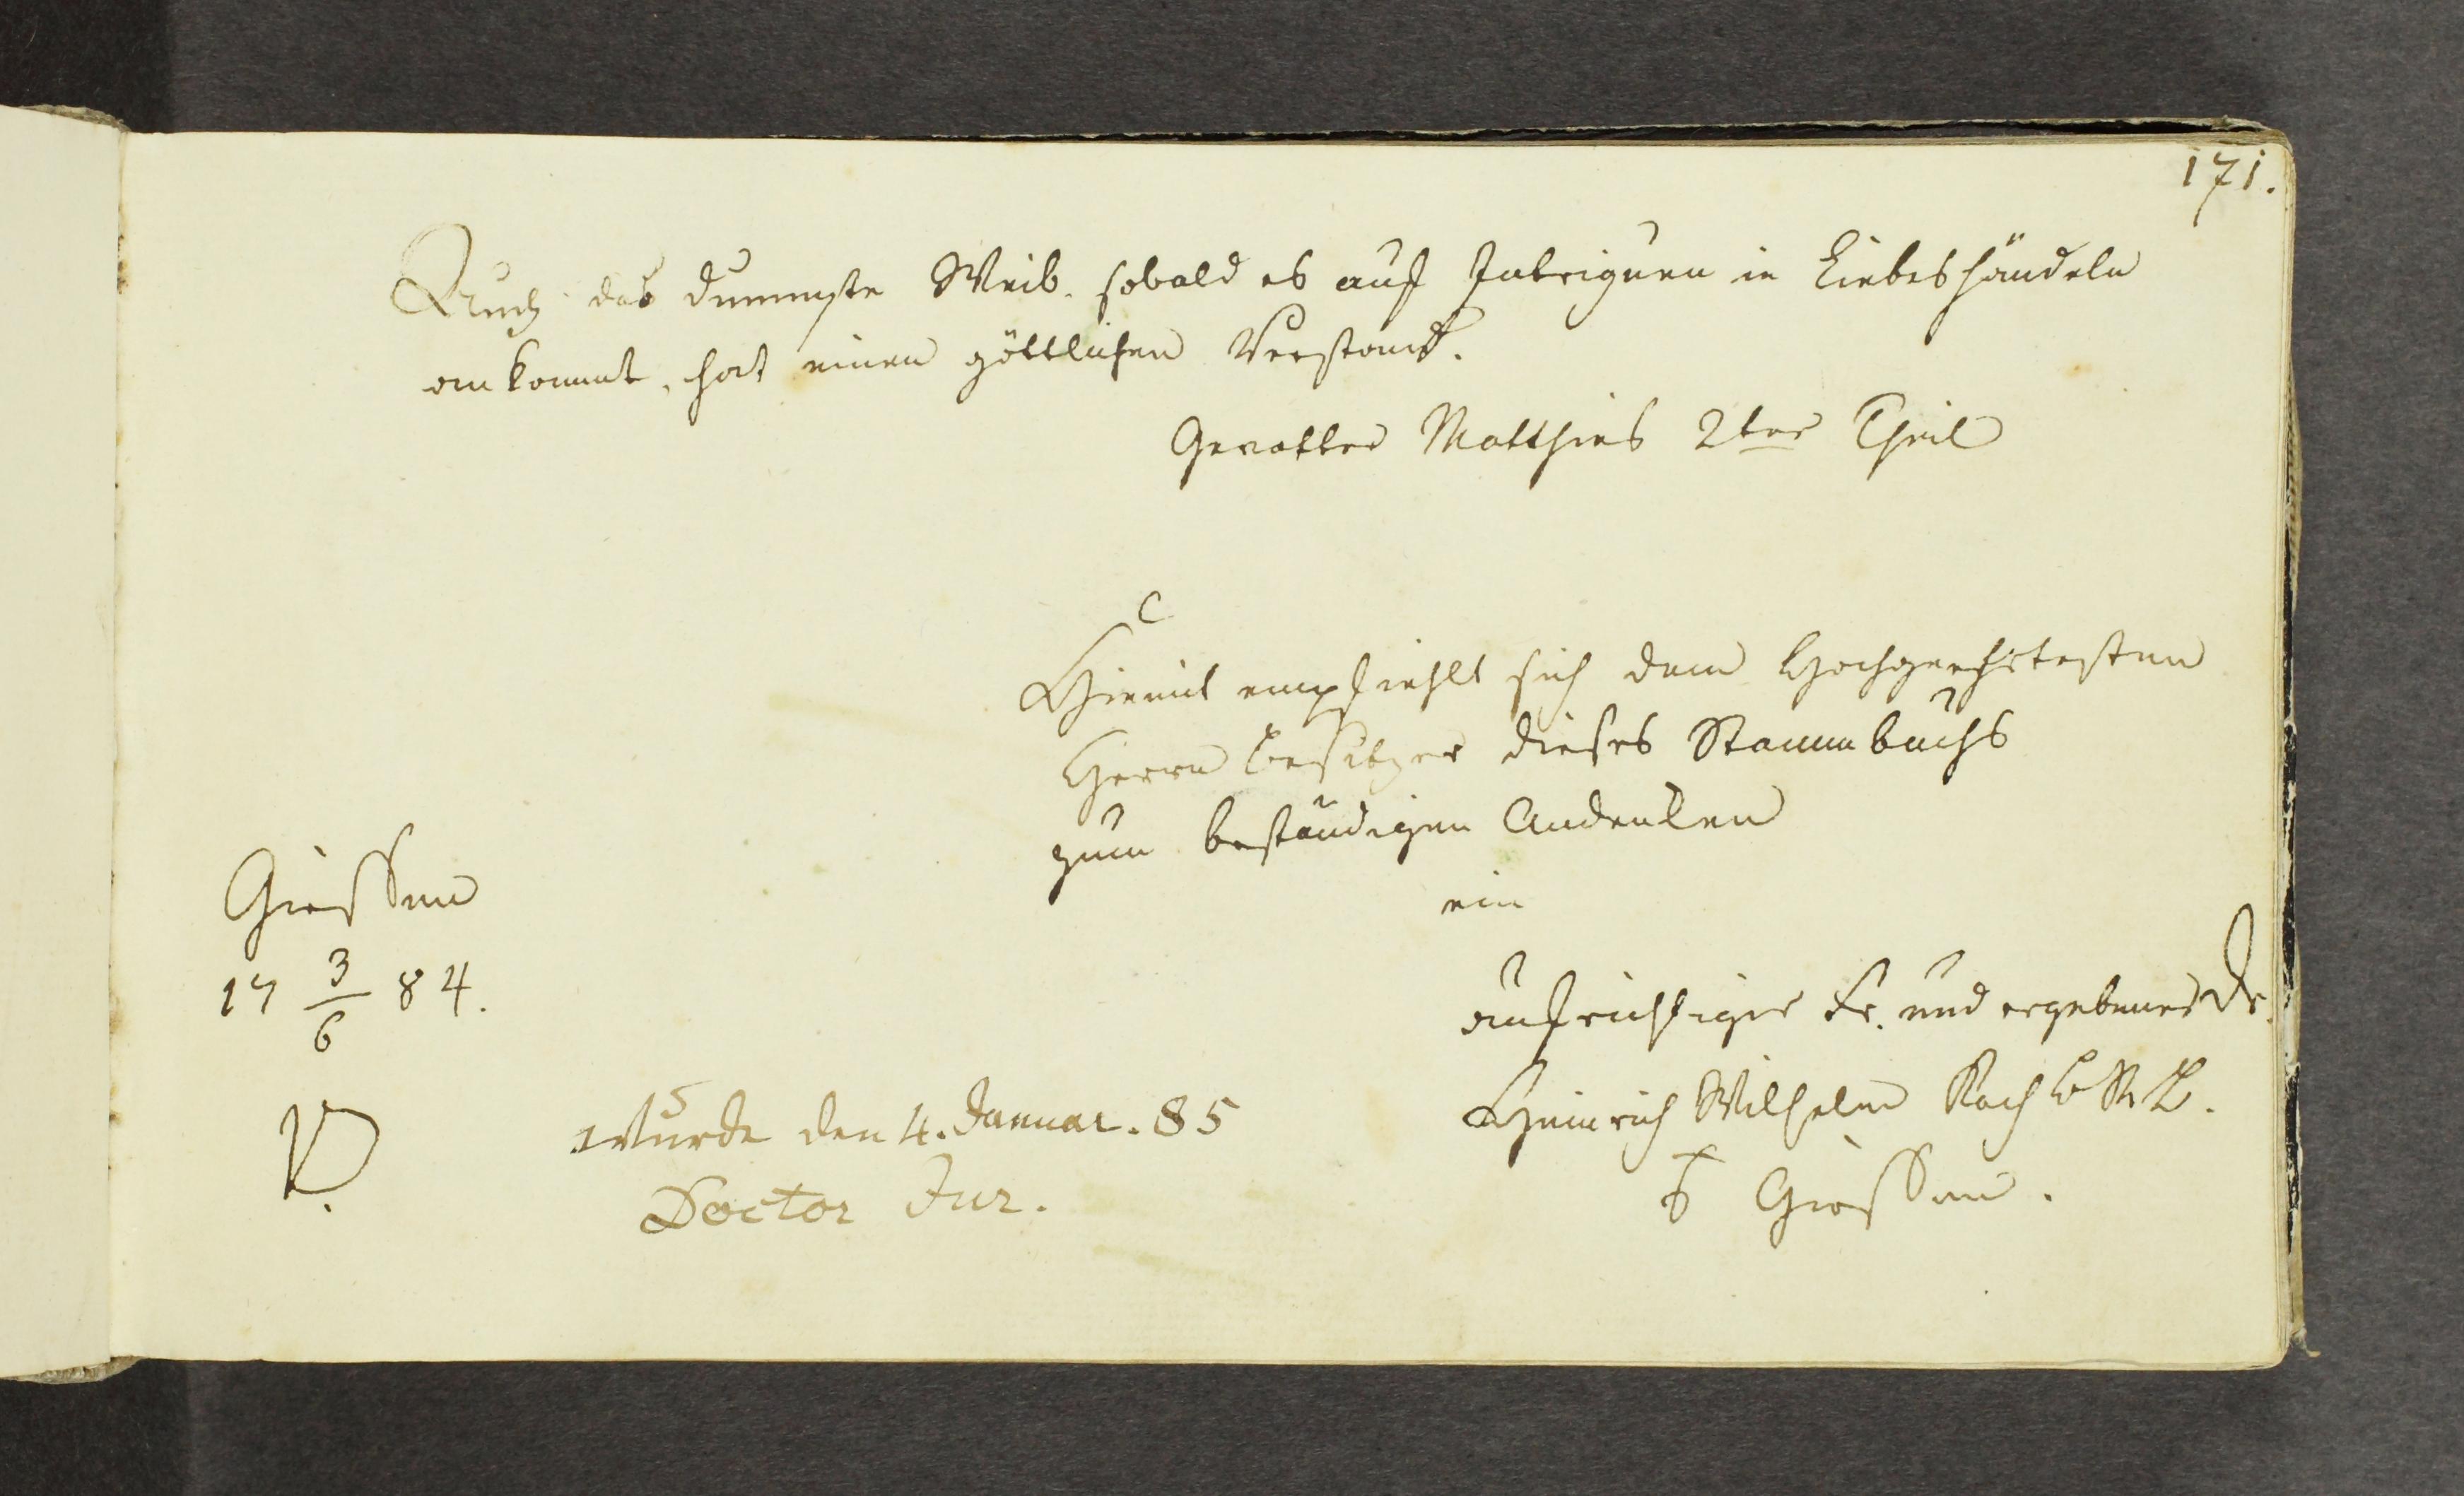 171.
Auch das dummste Weib. sobald es auf Intriguen in Liebeshändeln
ankommt, hat einen göttlichen Verstand.
Gevatter Matthies 2ter Theil
Hiemit empfiehlt sich dem Hochgeehrtesten
Herrn Besitzer dieses Stammbuchs
zum beständigen Andenken
ein
aufrichtiger Fr. und ergebener Dr.
Heinrich Wilhelm Koch
Giessen.
Giessen
17 3/6 84.
wurde den 4. Januar. 85
Doctor Jur.